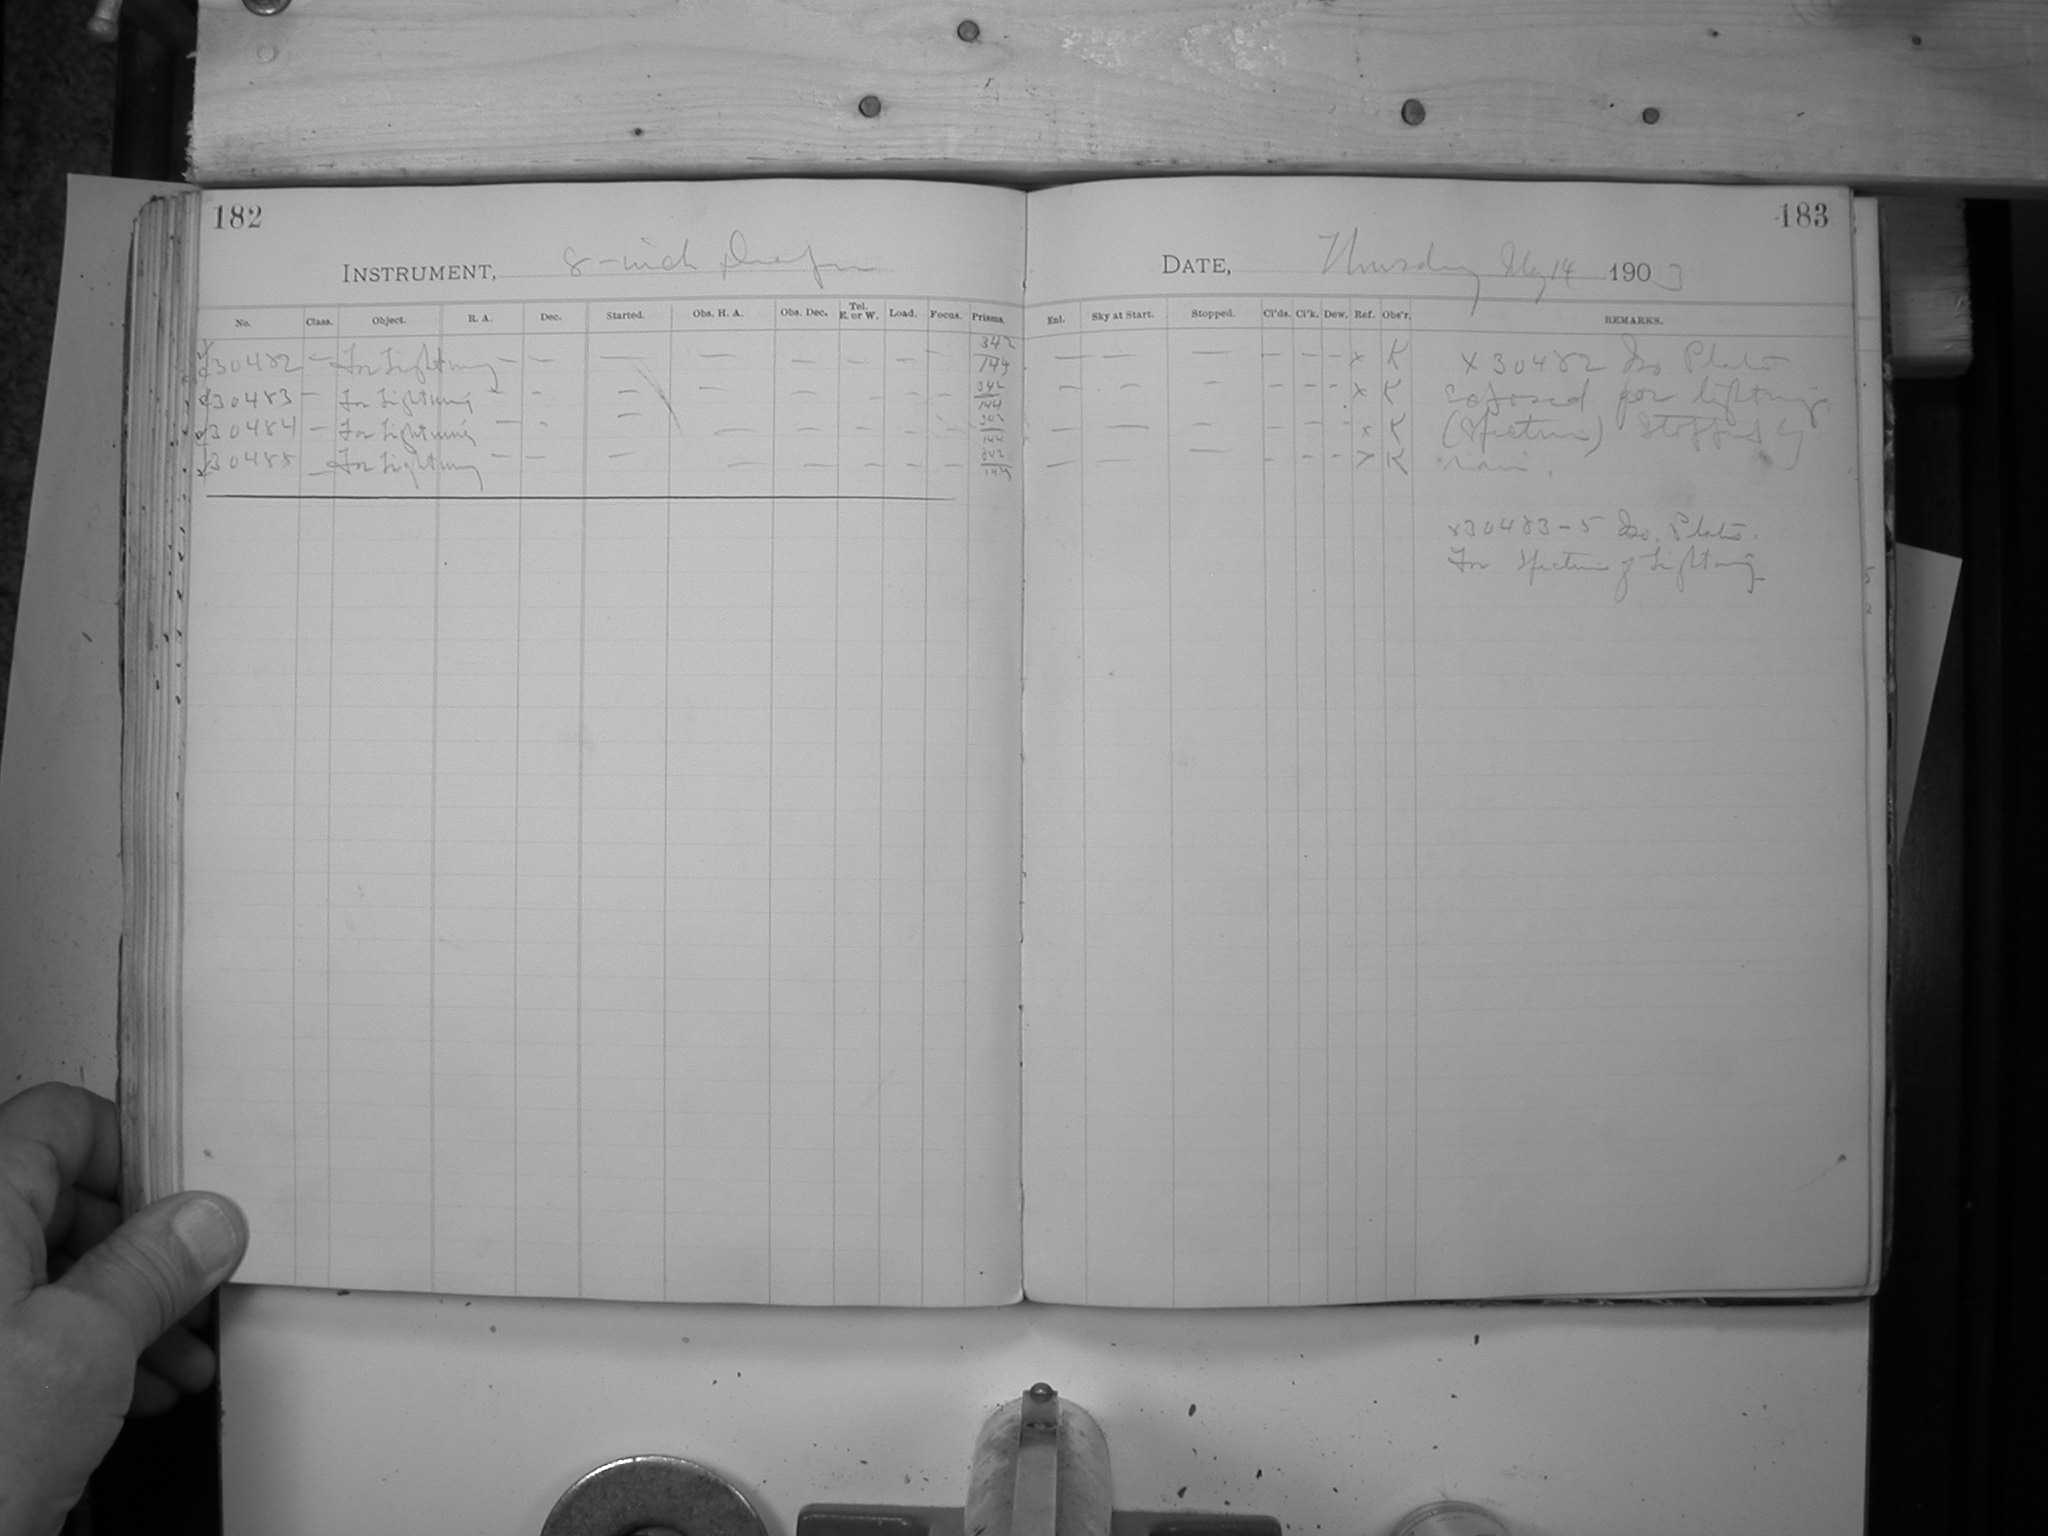 182
INSTRUMENT, 8-inch Draper
No. Class. Object. R. A. Dec. Started. Obs. H. A. Obs. Dec. Tel. E. or W. Load. Focus. Prisms.
x30482 — For Lightning — — — — — — — — 342/144
x30483 — For Lightning — - — — — — — — 342/144
x30484 — For Lightning — - — — — — — — 342/144
x30485 — For Lightning — — — — — — — — 342/144
183
DATE, Thursday 14 1903
Enl. Sky at Start. Stopped. Cl'ds. Cl'k. Dew. Ref. Obs'r. REMARKS.
— — — — — — x K x30482 Iso Plate
— — — — — — x K Exposed for lightning
— — — — — — x K (Spectrum) Stopped by
— — — — — — x K rain.
x30483-5 Iso. Plates.
For Spectrum of Lightning